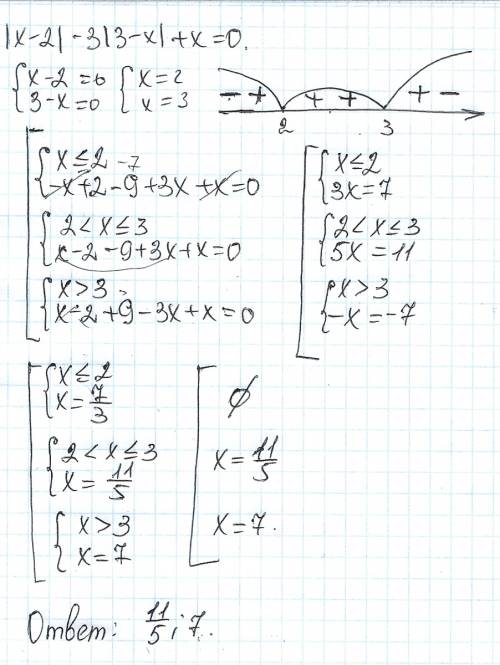 |x-2| -3|3-x| +x=0.
{x-2=0 {x=2
{3-x=0 {x=3
- + + + + -
2 3
[{x≤2 -7
{-x+2-9+3x+x=0
{2<x≤3
{x-2-9+3x+x=0
{x>3
{x-2+9-3x+x=0
[{x≤2
{3x=7
{2<x≤3
{5x=11
{x>3
{-x=-7
[{x≤2
{x=7/3
{2<x≤3
{x=11/5
{x>3
{x=7
[∅
x=11/5
x=7.
Ответ: 11/5; 7.